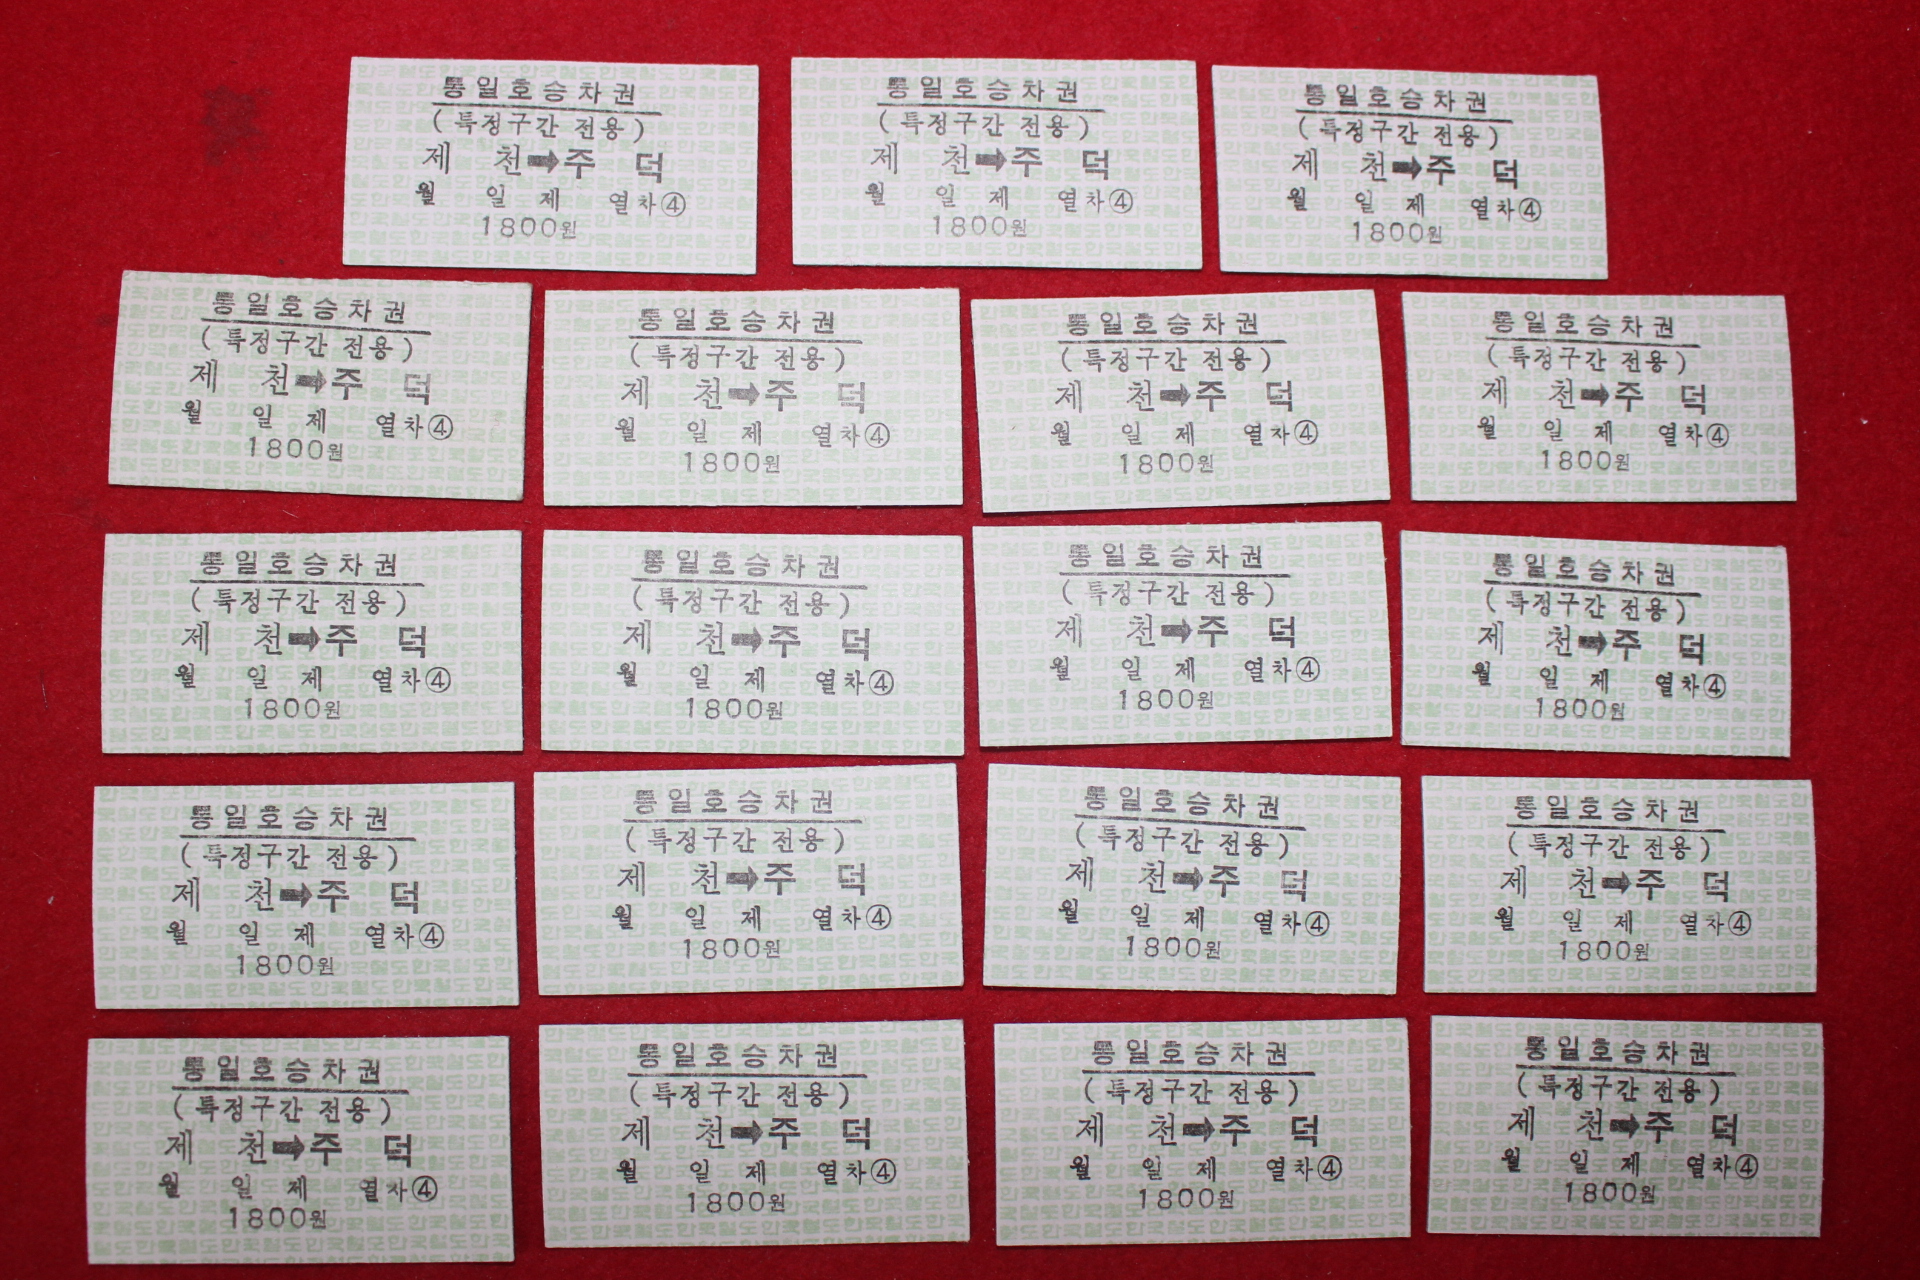 통일호승차권
(특정구간 전용)
제 천➡주 덕
월 일 제 열차④
1800원
통일호승차권
(특정구간 전용)
제 천➡주 덕
월 일 제 열차④
1800원
통일호승차권
(특정구간 전용)
제 천➡주 덕
월 일 제 열차④
1800원
통일호승차권
(특정구간 전용)
제 천➡주 덕
월 일 제 열차④
1800원
통일호승차권
(특정구간 전용)
제 천➡주 덕
월 일 제 열차④
1800원
통일호승차권
(특정구간 전용)
제 천➡주 덕
월 일 제 열차④
1800원
통일호승차권
(특정구간 전용)
제 천➡주 덕
월 일 제 열차④
1800원
통일호승차권
(특정구간 전용)
제 천➡주 덕
월 일 제 열차④
1800원
통일호승차권
(특정구간 전용)
제 천➡주 덕
월 일 제 열차④
1800원
통일호승차권
(특정구간 전용)
제 천➡주 덕
월 일 제 열차④
1800원
통일호승차권
(특정구간 전용)
제 천➡주 덕
월 일 제 열차④
1800원
통일호승차권
(특정구간 전용)
제 천➡주 덕
월 일 제 열차④
1800원
통일호승차권
(특정구간 전용)
제 천➡주 덕
월 일 제 열차④
1800원
통일호승차권
(특정구간 전용)
제 천➡주 덕
월 일 제 열차④
1800원
통일호승차권
(특정구간 전용)
제 천➡주 덕
월 일 제 열차④
1800원
통일호승차권
(특정구간 전용)
제 천➡주 덕
월 일 제 열차④
1800원
통일호승차권
(특정구간 전용)
제 천➡주 덕
월 일 제 열차④
1800원
통일호승차권
(특정구간 전용)
제 천➡주 덕
월 일 제 열차④
1800원
통일호승차권
(특정구간 전용)
제 천➡주 덕
월 일 제 열차④
1800원